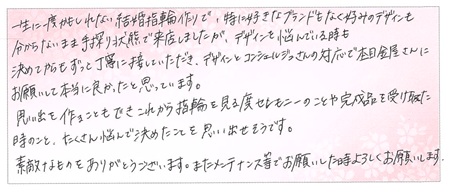 一生に一度かもしれない結婚指輪作りで、特に好きなブランドもなく好みのデザインも
分からないまま手探り状態で来店しましたが、デザインを悩んでいる時も
決めてからもずっと丁寧に接していただき、デザインとコンシェルジュさんの対応で本日金屋さんに
お願いして本当に良かったと思っています。
思い出を作ることもできこれから指輪を見る度セレモニーのことや完成品を受け取った
時のこと、たくさん悩んで決めたことを思い出せそうです。
素敵なものをありがとうございます。またメンテナンス等でお願いした時よろしくお願いします。